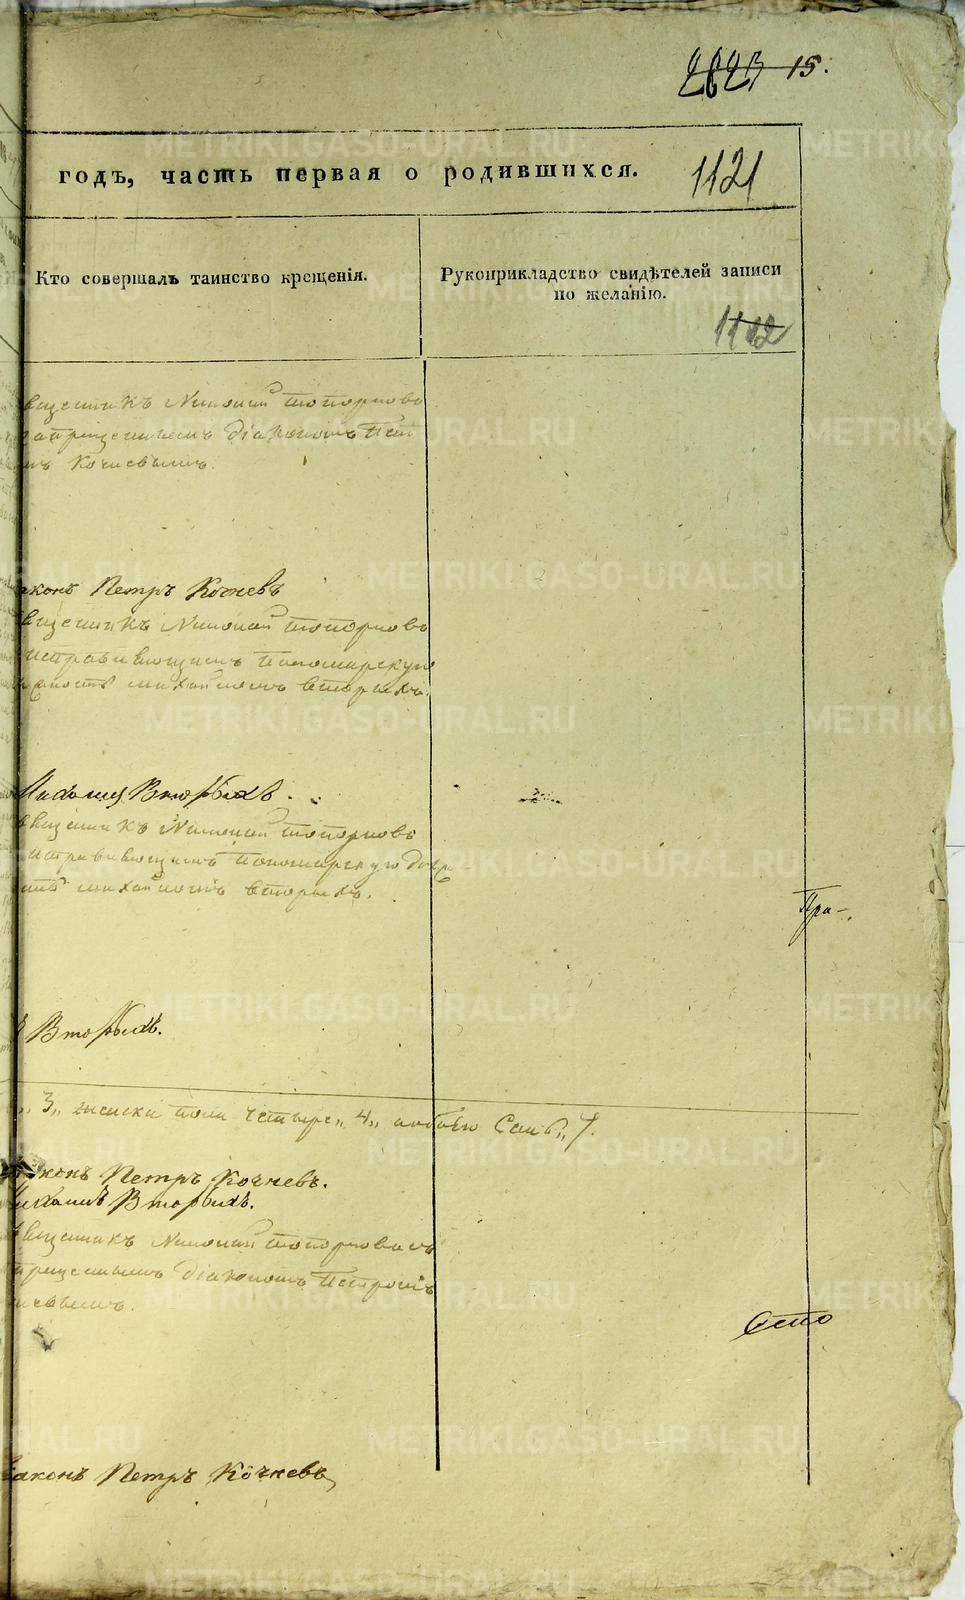 2623 15.
годъ, часть первая о родившихся. 1121
Кто совершалъ таинство крещенія.
Рукоприкладство свидѣтелей записи
по желанію.
1112
вященикъ Николай Топорковъ
діакономъ Пет
мъ Кочневымъ.
іаконъ Петръ Кочневъ
вященикъ Николай Топорковъ
исправляющимъ Пономарскую
Михаиломъ Вторыхъ.
Михаилъ Вторыхъ.
вященикъ Николай Топорковъ
исправляющимъ Пономарскую долж
Михаиломъ Вторыхъ.
Пра-
Вторыхъ.
„ 3„ женска пола четыре„ 4„ обоего Семь„ 7.
іаконъ Петръ Кочневъ.
Михаилъ Вторыхъ.
вященикъ Николай Топорковъ
діакономъ Петромъ
чневымъ.
іаконъ Петръ Кочневъ
METRIKI.GASO-URAL.RU